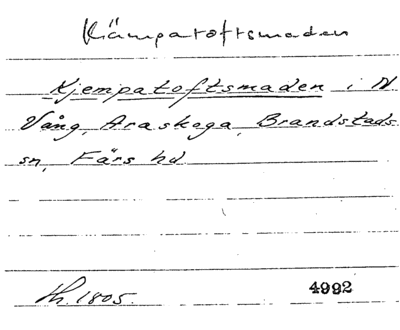 Kämpatoftsmaden
Kjempatoftsmaden i N
Vång, Araskoga, Brandstads
sn, Färs hd
Th. 1805. 4992